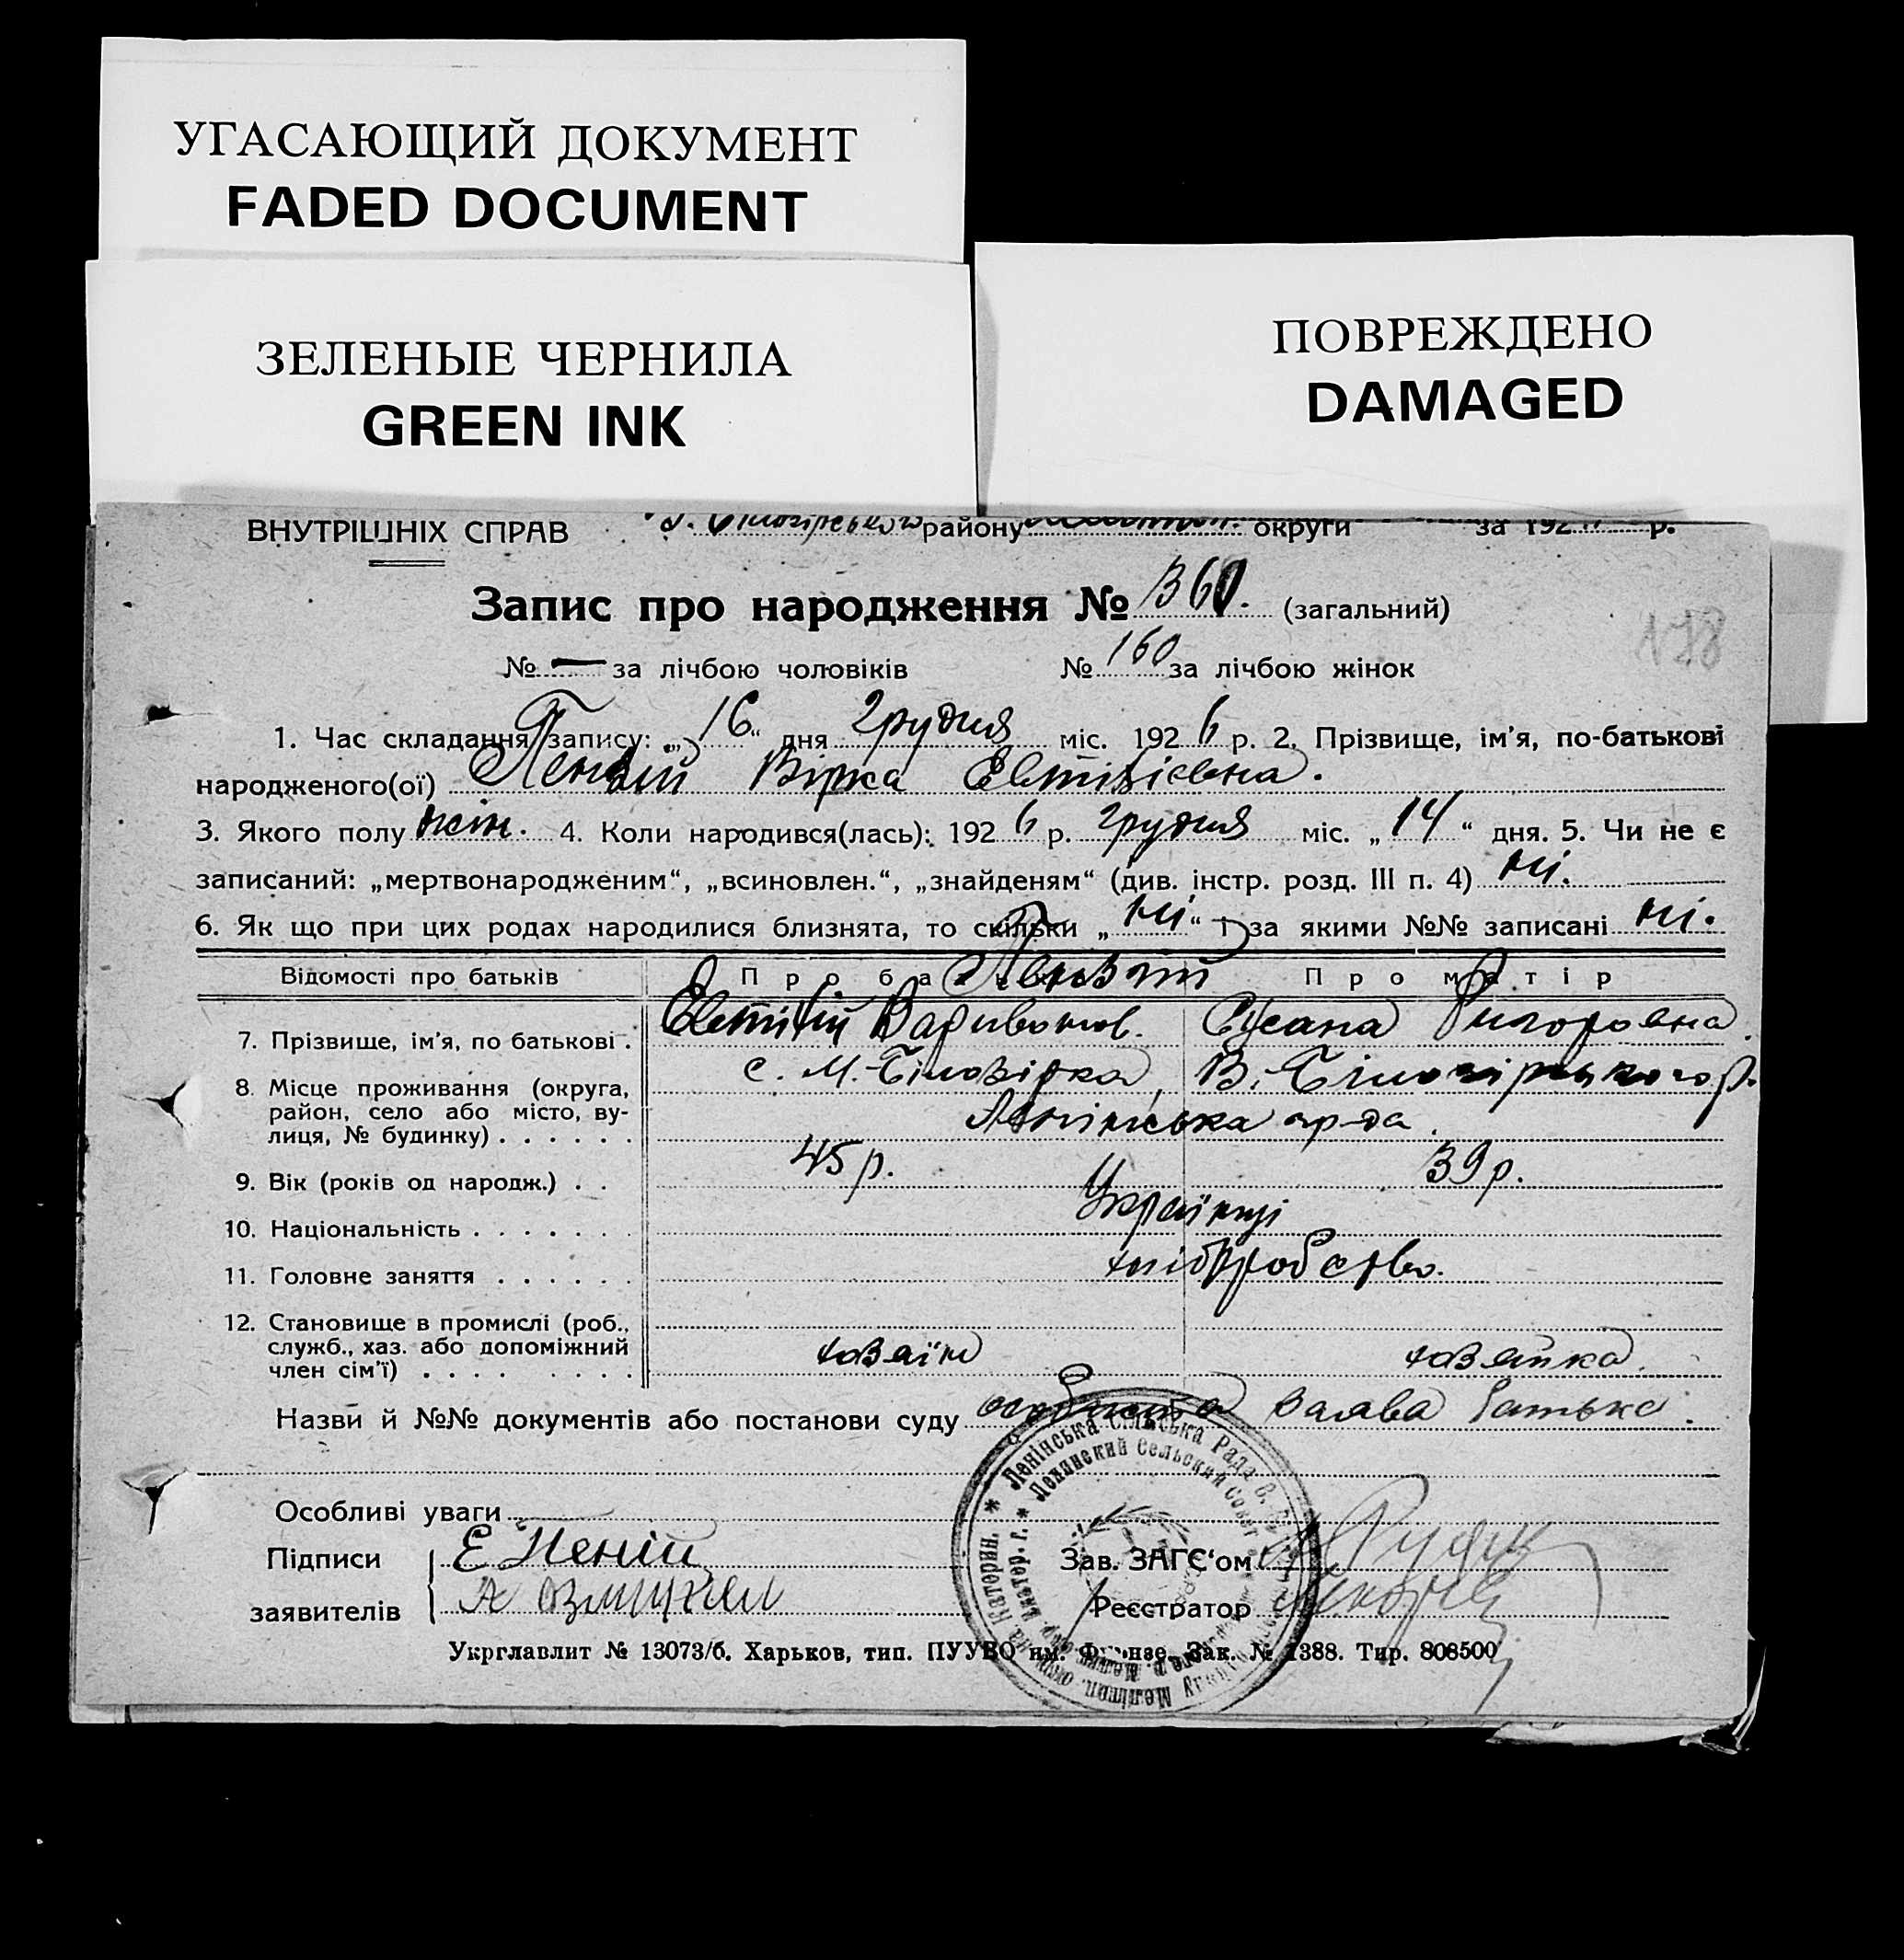 УГАСАЮЩИЙ ДОКУМЕНТ
FADED DOCUMENT
ЗЕЛЕНЫЕ ЧЕРНИЛА
GREEN INK
ПОВРЕЖДЕНО
DAMAGED
ВНУТРІШНІХ СПРАВ району округи за 192 р.
Запис про народження № 360. (загальний)
№ — за лічбою чоловіків № 160 за лічбою жінок
178
1. Час складання запису: „16“ дня Грудня міс. 1926 р. 2. Прізвище, ім’я, по-батькові
народженого(ої) Вірка
3. Якого полу жін. 4. Коли народився(лась): 1926 р. грудня міс. „14“ дня. 5. Чи не є
записаний: „мертвонародженим“, „всиновлен.“, „знайденям“ (див. інстр. розд. III п. 4) ні.
6. Як що при цих родах народилися близнята, то скільки „ні“ і за якими №№ записані ні.
Відомості про батьків Про ба Про матір
7. Прізвище, ім’я, по батькові. Сусана Григоровна
8. Місце проживання (округа, район, село або місто, вулиця, № будинку) с. М.-Білозірка, В.-Білозірського р.
Ленінська гр-да.
9. Вік (років од народж.) 45 р. 39 р.
10. Національність Українці
11. Головне заняття хліборобство.
12. Становище в промислі (роб., служб., хаз. або допоміжний член сім’ї) хазяїн хазяйка.
Назви й №№ документів або постанови суду особиста заява батька.
Особливі уваги
Підписи Е Пеній
заявителів
Зав. ЗАГС‘ом
Реєстратор
Ленінська Сільська Рада
Ленинский Сельский Совет
Укрглавлит № 13073/б. Харьков, тип. ПУУВО им. Фрунзе. Зак. № 1388. Тир. 808500